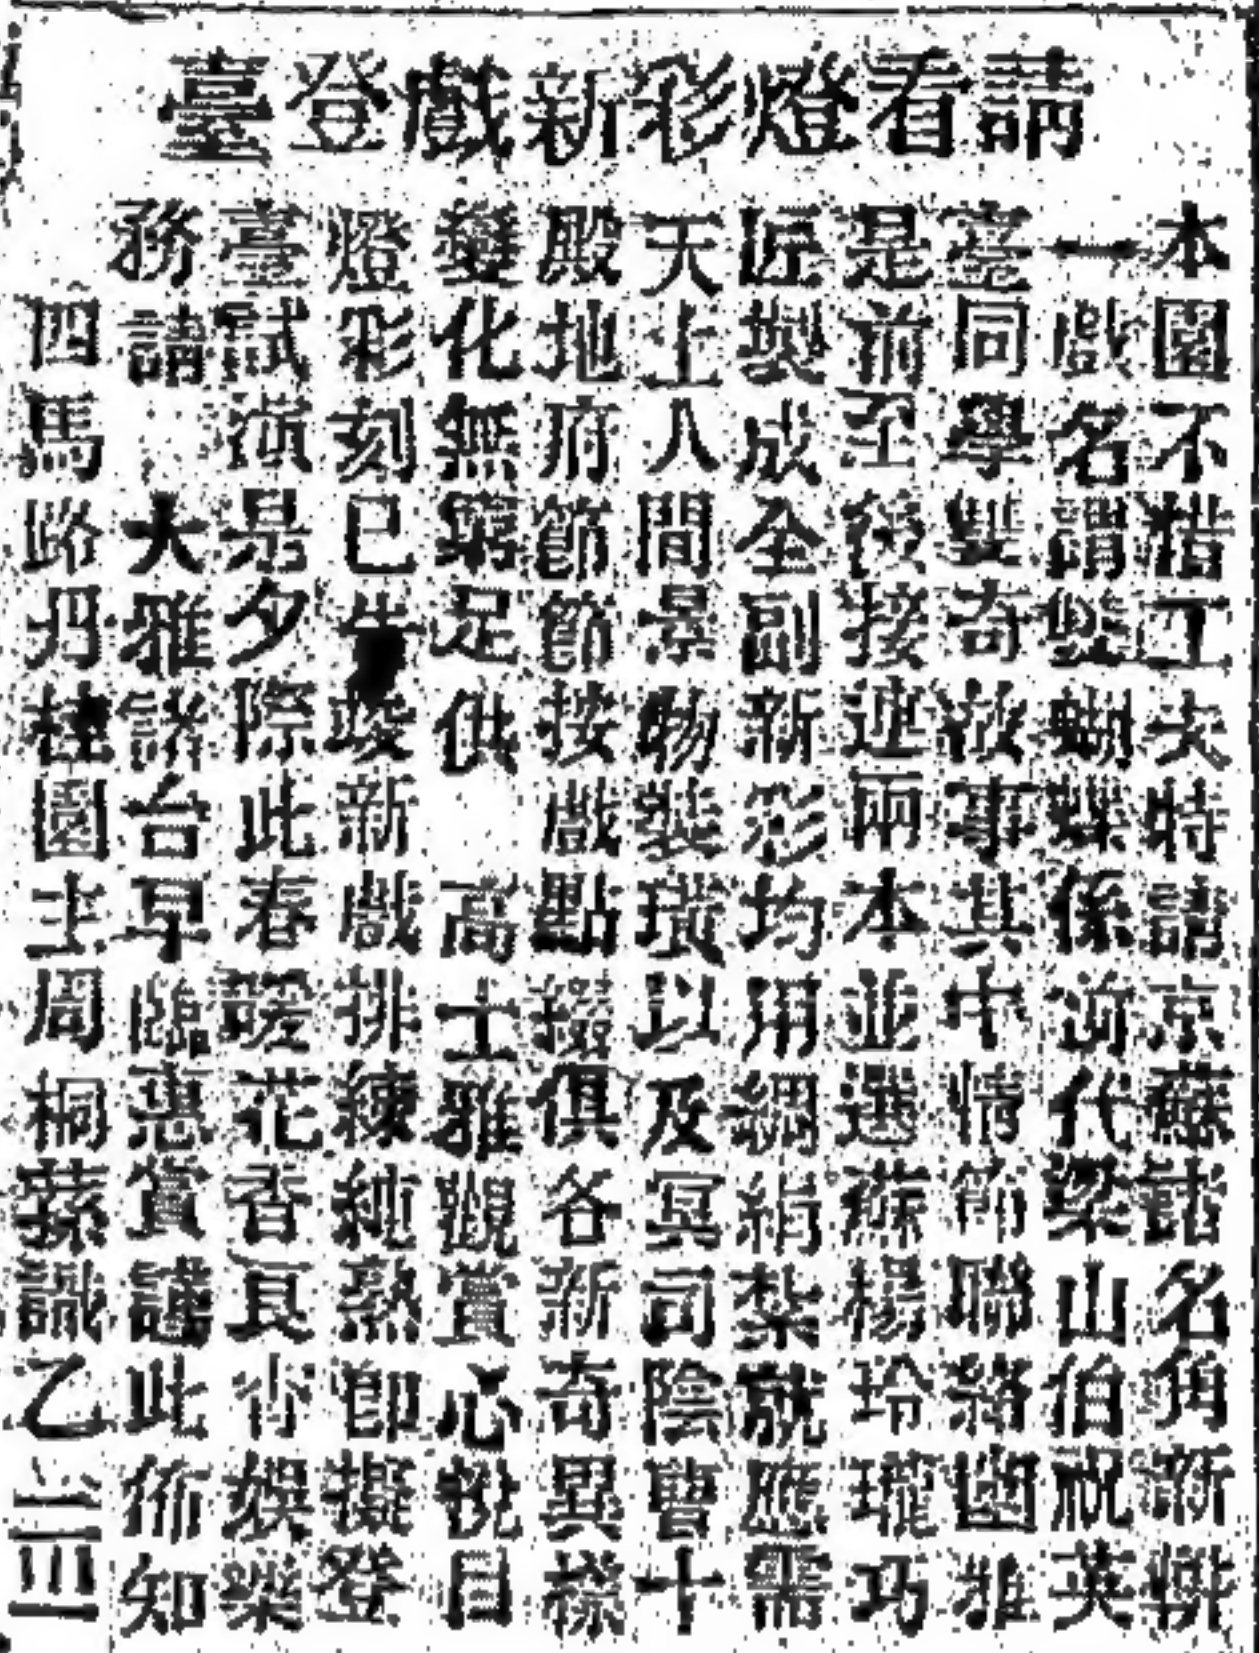 請看燈彩新戲登臺
本園不惜工夫特請京蘇諸名角新排
一戲名謂雙蝴蝶係近代梁山伯祝英
臺同學雙奇故事其中情節聯絡幽雅
是前至後接連兩本並選蘇楊玲瓏巧
匠製成全副新彩均用綢絹紮就應需
天上人間景物裝璜以及冥司陰曹十
殿地府節節按戲點綴俱各新奇異樣
變化無窮足供 高士雅觀賞心悅目
燈彩刻已告竣新戲排練純熟即擬登
臺試演是夕際此春暖花香良宵娛樂
務請 大雅諸台早臨惠賞謹此佈知
四馬路丹桂園主周桐蓀識乙二三